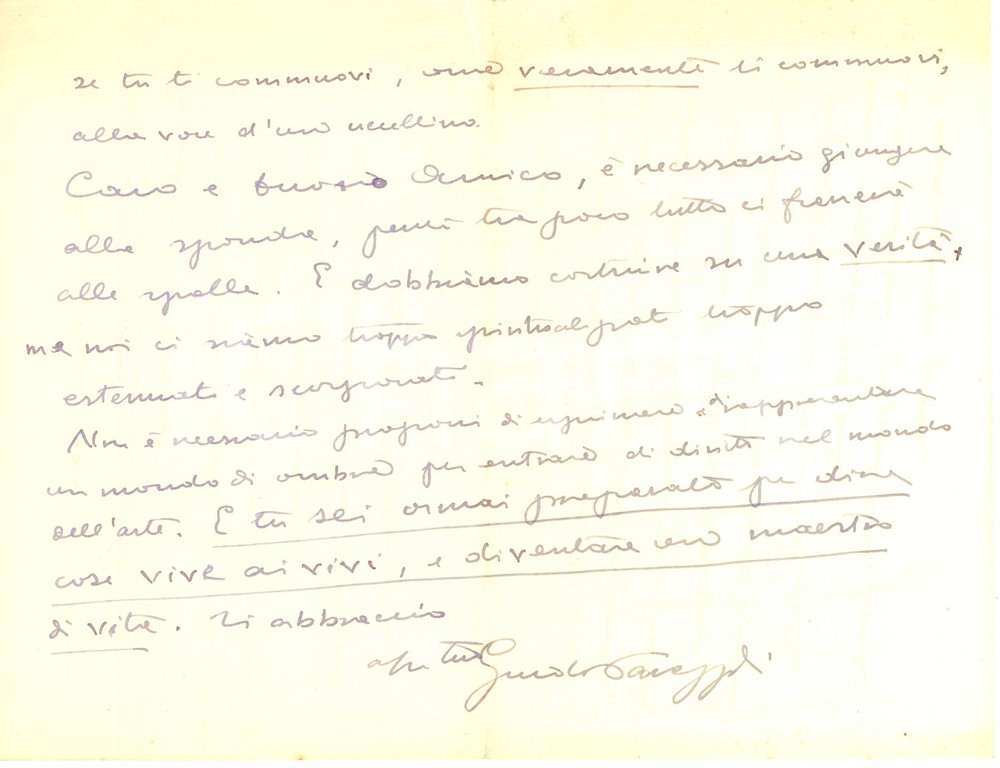 se tu ti commuovi, come veramente ti commuovi,
alla voce d'un uccellino.
Caro e buono Amico, è necessario giungere
alla sponda, perché tra poco tutto ci franerà
alle spalle. E dobbiamo costruire su una verità,
ma noi ci siamo troppo spiritualizzati troppo
estenuati e scorporati.
Non è necessario proporsi di esprimere e di rappresentare
un mondo di ombre per entrare di diritto nel mondo
dell'arte. E tu sei ormai preparato per dire
cose vive ai vivi, e diventare un maestro
di vita. Ti abbraccio
aff. tuo Guido